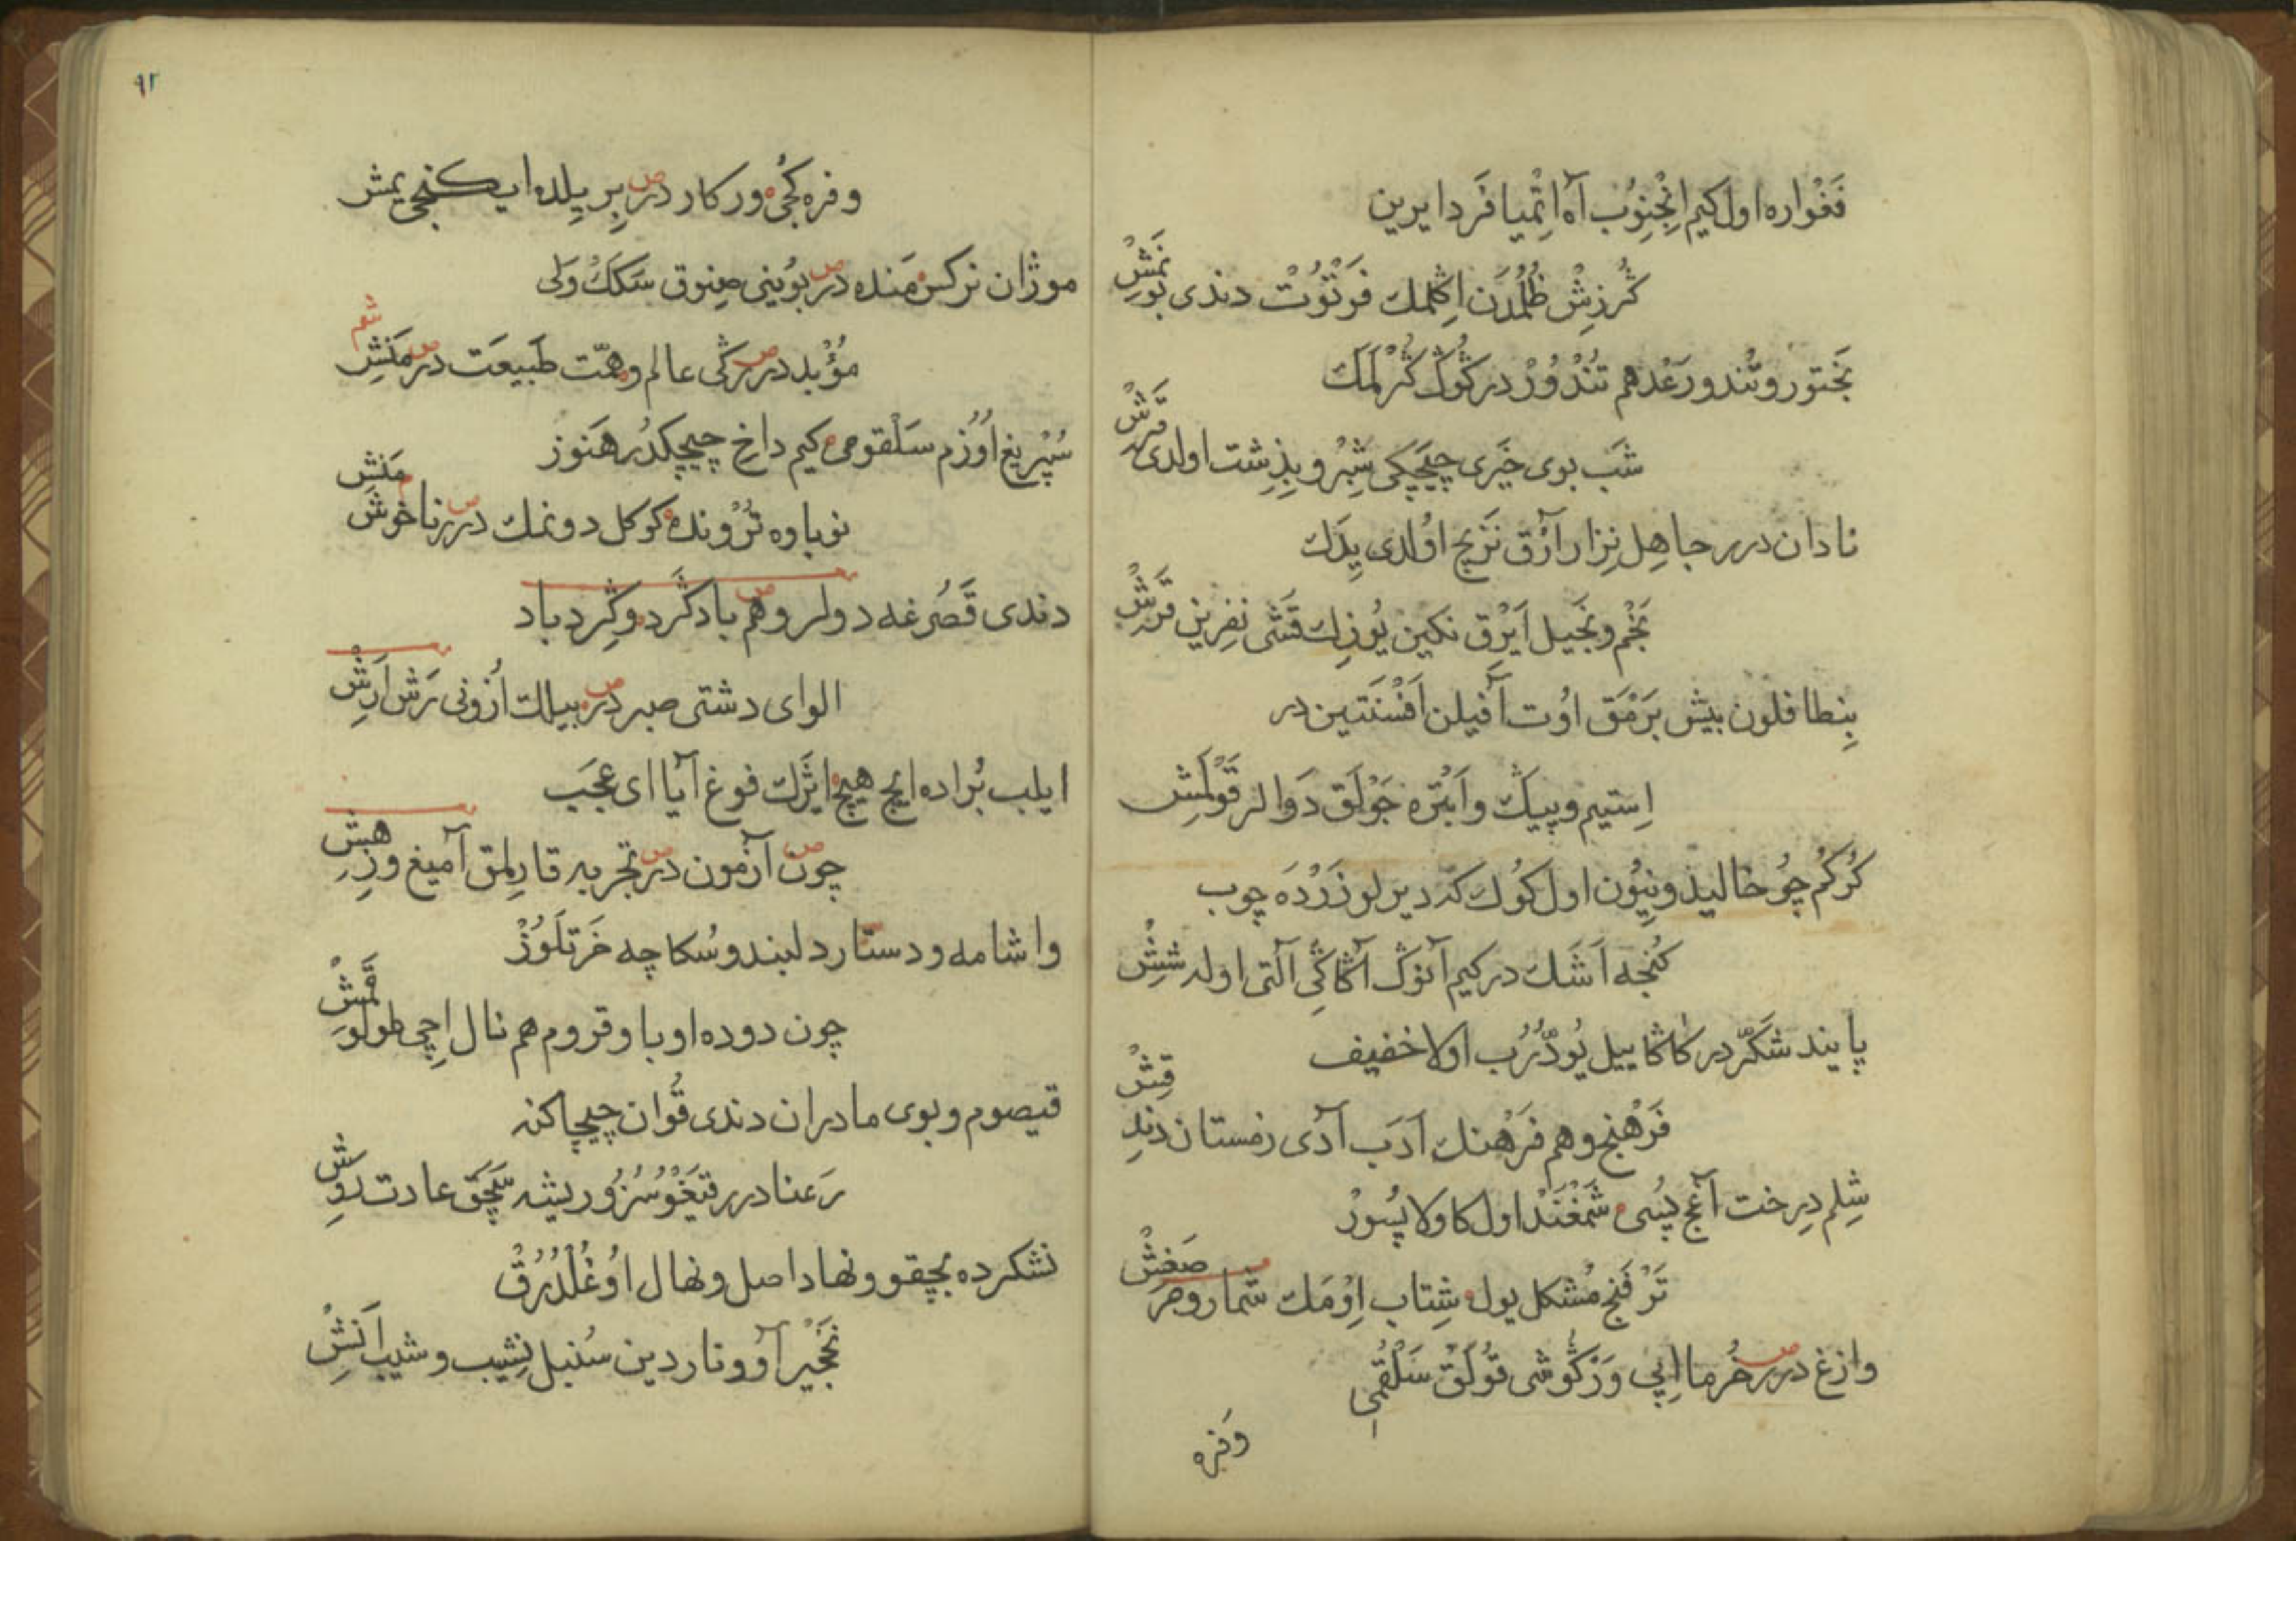 فَغْواره اول كيم اِنْجِنوُب آه اِتْميا فَردا يرين
كُرزِشْ ظُلْمدَن اِڭلمك فَرتوُت دندى بوُنمَشْ
بَختور و تُندور رَعْد هم تُندُورْ در كُوڭ كُرلَمَك
شَب بوى خيَرى چچَكى شِبْر و بِذِشت اولدى قرَشْ
نادان درر جاهل نِزار آرُق نَزنج اوُلدى يِدَك
بَخْم و بَخيل اَيْرُق نكين يُوزك قَشى نفرين قَرغش
بِنطافلون بيش بَرمَق اوُت آفيلن اَفْسَنَتين در
اِستيم و پيك و اَبْتَره جَوْلَق دَوالر قَوْلَمش
كُركُم چو خاليذونيوُن اول كوُك كه ديرلر زَرْدَه چوب
كُنجه اَشَك در كيم آنوڭ آڭاكى آلتى اولر شِشْ
پايند شكّر در كاڭا ييل يُودُرُب اولا خفيف
فَرهَنج و هم فَرهَنك اَدَب آدى زمستان دندِ قِشْ
شِلم دِرخت آغَج پُسى شَمْغَنْد اول كاولا پُسوُرْ
تَرفَنج مُشكل يول شِتاب اِوْمَك شمار و مر صَغشْ
وازغ درر خُرما اِپى وَزكُوشى قوُلَقْ سَلْقُمى
وَفره
٩٢
و فره كچى وركار در بر يلده ايكنجى يمش
موژان نركس مَنده در بوُينى صِنوق سَكَكْ وَلى
مؤبد درر كى عالم و همّت طَبيعَت در مَنِش
سُپْريغ اوُزُم سَلْقومى كيم داخ چيچكدُر هَنوز
نوباوه تَرْونده كوكل دونمك درر ناخوش مَنِش
دندى قَصُرغه دولر و هم باد كَرد و كِرد باد
الواى دشتى صبر در بيلك اُزونى رَش اَرَش
ايلب بُراده ايج هيچ ايژك فوغ آيا اى عجَب
چون آزمون در تجربه قارلمق آميغ و زِهِش
واشامه و دستار دلبند و سُكاچه خَرتَلَوُزْ
چون دوده اوبا و قروم هم نال اِچى طولو قَمِشْ
قيصوم و بوى مادران دندى قُوان چيچاكنه
رَعنا درر قيَغوُسُز و ريشه سَچَق عادت روِش
نشكرده بچقو و نهاد اصل و نهال اوُغُلْدُرُق
نَخْجير آو و ناردين سنبل نِشيب و شيب اَنِش